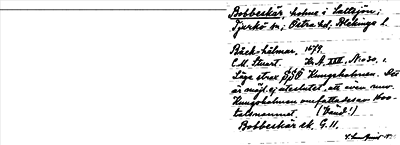 Bobbeskär, holme i Sattesjön;
Tjurkö sn; Östra hd, Blekinge l.
Bäck-hålmar, 1679.
C.M. Stuart. K.A. XIII, N:o 30. 1.
Låge strax SSÖ Kungsholmen. Det
är möjl. ej uteslutet, att även nuv.
Kungsholmen omfattades av 1600-
talsnamnet
Bobbeskär ek. G. 11.